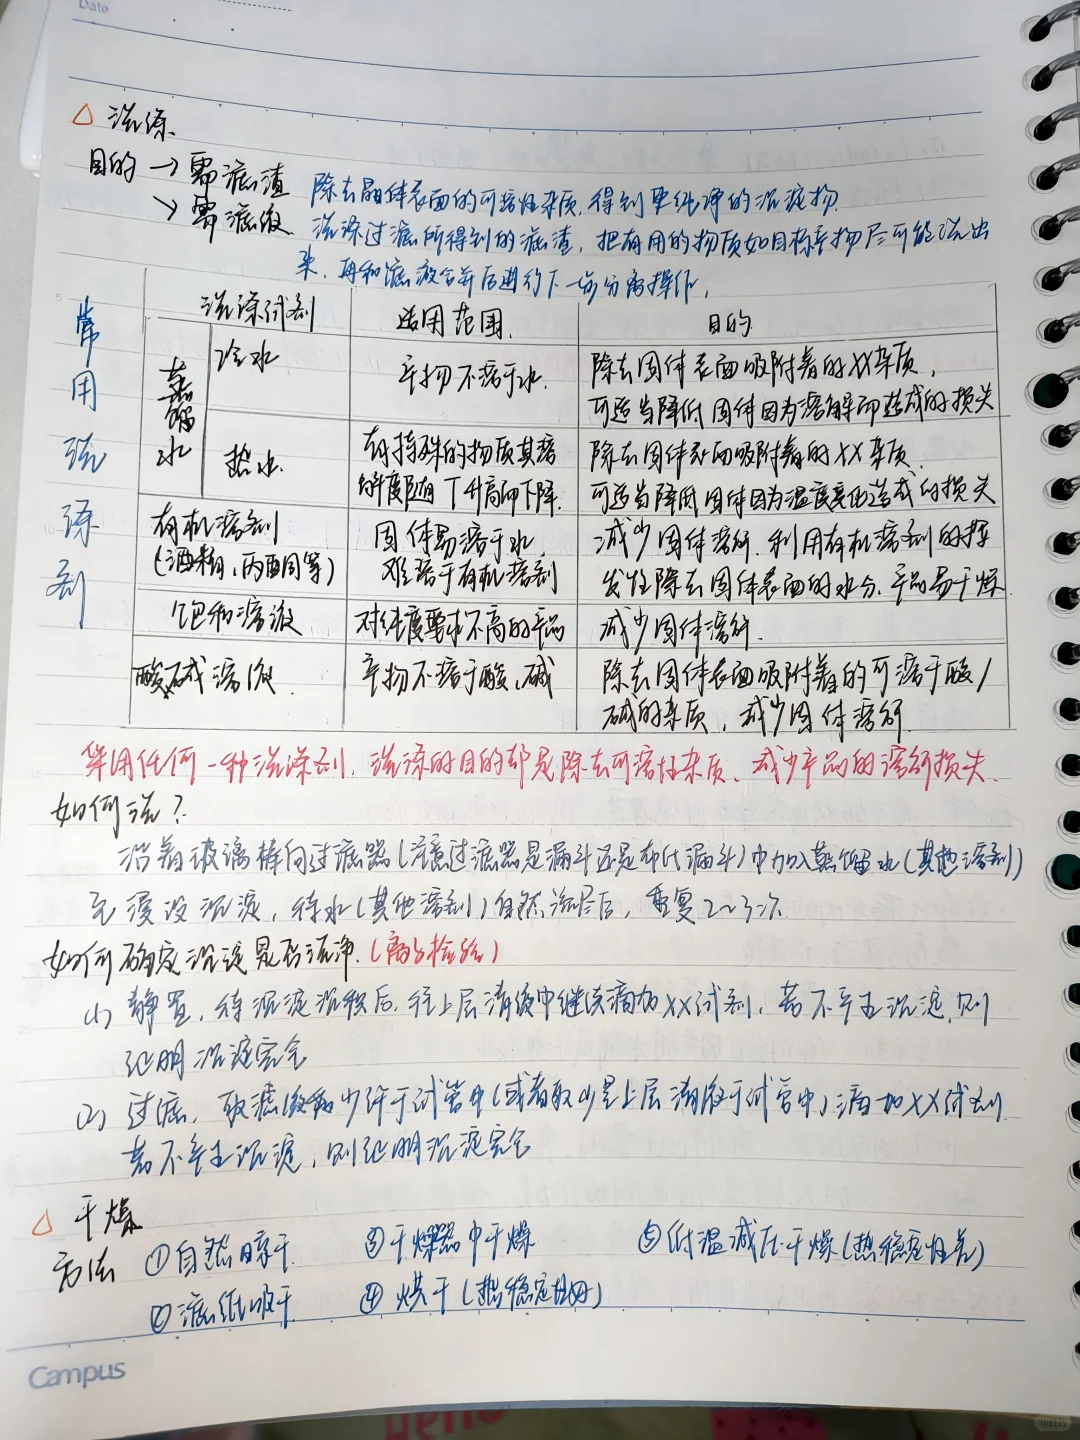 Date
△ 洗涤
目的 → 需滤渣 除去晶体表面的可溶性杂质,得到更纯净的沉淀物.
↘ 需滤液 洗涤过滤所得到的滤渣,把有用的物质如目标产物尽可能洗出
来,再和滤液合并后进行下一步分离操作.
常用洗涤剂
洗涤试剂 适用范围. 目的
蒸馏水 冷水 产物不溶于水. 除去固体表面吸附着的XX杂质,
可适当降低固体因为溶解而造成的损失
热水. 有特殊的物质其溶 除去固体表面吸附着的XX杂质.
解度随T升高而下降. 可适当降低固体因为温度变化造成的损失
有机溶剂 固体易溶于水, 减少固体溶解.利用有机溶剂的挥
(酒精、丙酮等) 难溶于有机溶剂 发性除去固体表面的水分.产品易干燥.
饱和溶液 对纯度要求不高的产品 减少固体溶解.
酸、碱溶液. 产物不溶于酸、碱 除去固体表面吸附着的可溶于酸/
碱的杂质,减少固体溶解.
使用任何一种洗涤剂,洗涤的目的都是除去可溶性杂质、减少产品的溶解损失.
如何洗?
沿着玻璃棒向过滤器(注意过滤器是漏斗还是布氏漏斗)中加入蒸馏水(其他溶剂)
至浸没沉淀,待水(其他溶剂)自然流尽后,重复2~3次
如何确定沉淀是否洗净.(离子检验)
(1) 静置,待沉淀沉积后,往上层清液中继续滴加XX试剂,若不产生沉淀,则
证明沉淀完全
(2) 过滤,取滤液少许于试管中(或者取少量上层清液于试管中)滴加XX试剂
若不产生沉淀,则证明沉淀完全
△ 干燥
方法 ①自然晾干. ③干燥器中干燥 ⑤低温减压干燥(热稳定性差)
②滤纸吸干. ④烘干(热稳定性好)
Campus